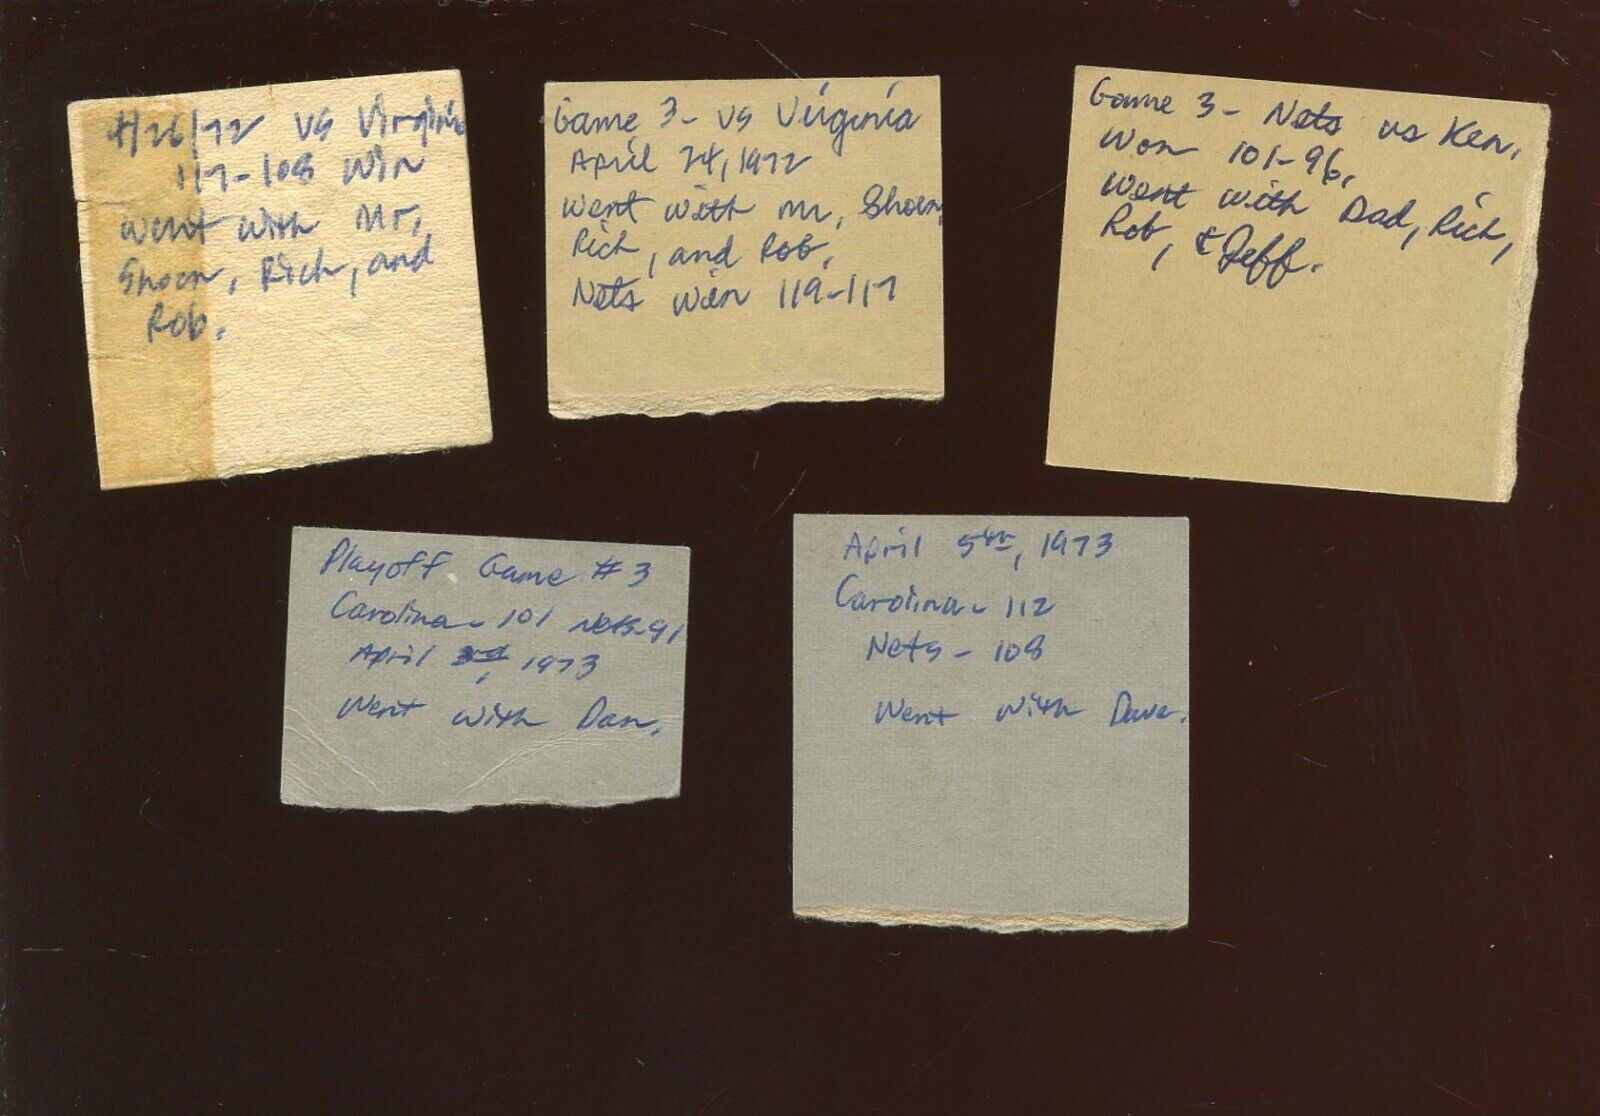 4/26/72 vs Virginia
117-108 Win
Went with Mr.
Shoen, Rich, and
Rob.
Game 3- vs Virginia
April 24, 1972
Went with Mr. Shoen,
Rich, and Rob.
Nets win 119-117
Game 3- Nets vs Ken.
Won 101-96.
Went with Dad, Rich,
Rob, & Jeff.
Playoff Game #3
Carolina- 101 Nets-91
April 3rd, 1973
Went with Dan.
April 5th, 1973
Carolina- 112
Nets- 108
Went with Dave.